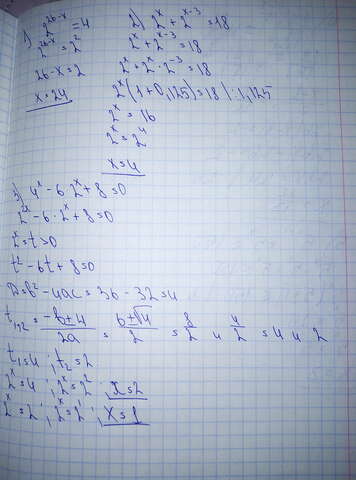 1) 2^(26-x) = 4
2^(26-x) = 2^2
26-x=2
x=24
2) 2^x + 2^(x-3) = 18
2^x + 2^(x-3) = 18
2^x + 2^x · 2^(-3) = 18
2^x (1+0,125) = 18 | : 1,125
2^x = 16
2^x = 2^4
x=4
3) 4^x - 6 · 2^x + 8 = 0
2^(2x) - 6 · 2^x + 8 = 0
2^x = t > 0
t^2 - 6t + 8 = 0
D = b^2 - 4ac = 36 - 32 = 4
t_(1,2) = (-b ± 4)/(2a) = (6 ± √4)/2 = 8/2 и 4/2 = 4 и 2
t_1 = 4 ; t_2 = 2
2^x = 4 ; 2^x = 2^2 ; x = 2
2^x = 2 ; 2^x = 2^1 ; x = 1